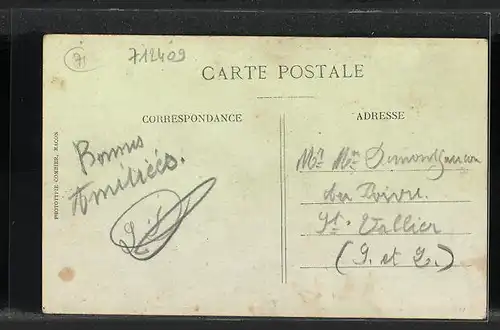 71
712409
CARTE POSTALE
CORRESPONDANCE
ADRESSE
PHOTOTYPIE COMBIER, MACON
Bonnes
Amitiées.
Mr Mme
St. Vallier
(S. et L.)